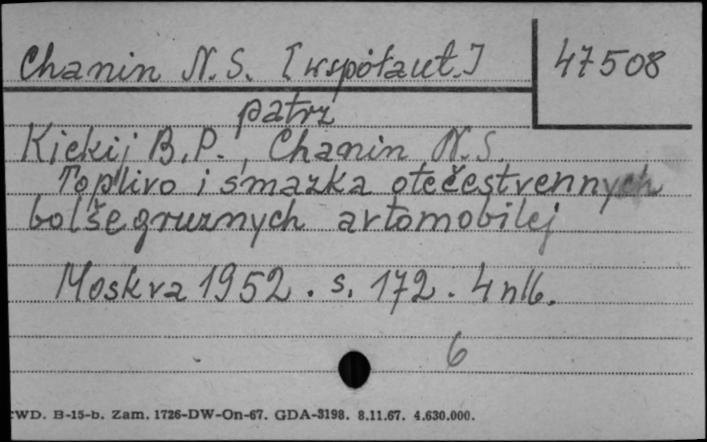 Chanin N.S. [współaut.]
47508
patrz
Kickij B.P., Chanin N.S.
Toplivo i smazka otečestvennych
bol'šegruznych avtomobilej
Moskva 1952. s. 172. 4 nlb.
6
WD. B-15-b. Zam. 1726-DW-On-67. GDA-3198. 8.11.67. 4.630.000.